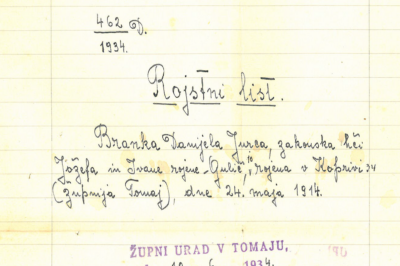 462 D.
1934.
Rojstni list.
Branka Danijela Jurca, zakonska hči
Jožefa in Ivane rojene Gulič, rojena v Koprivi 34
(župnija Tomaj), dne 24. maja 1914.
ŽUPNI URAD V TOMAJU,
6 1934.